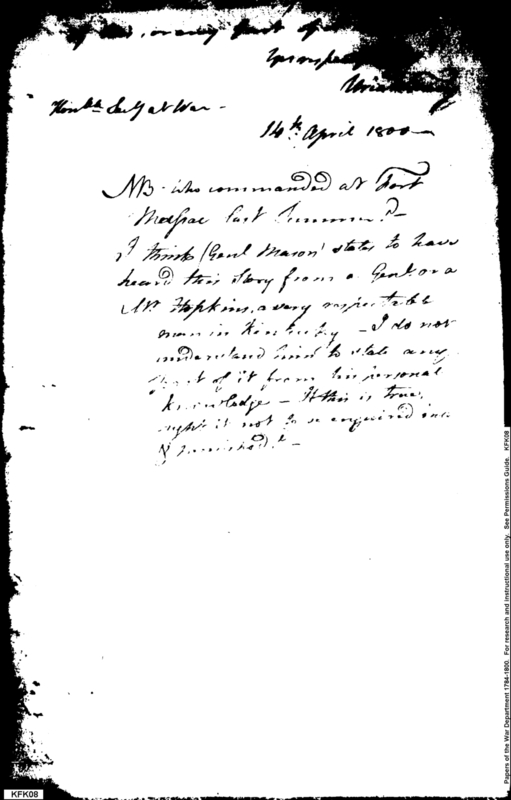 of this, or any part of
Yours respy
Uriah
Honble Secy at War -
14th April 1800 -
NB - who commanded at Fort
Massac last Summer? -
I think (Genl Mason) states to have
heard this story from a Genl or a
Mr Hopkins, a very respectable
man in Kentucky - I do not
understand him to state any
part of it from his personal
knowledge - If this is true,
ought it not to be enquired into
& punished? -
KFK08
Papers of the War Department 1784-1800. For research and instructional use only. See Permissions Guide. KFK08